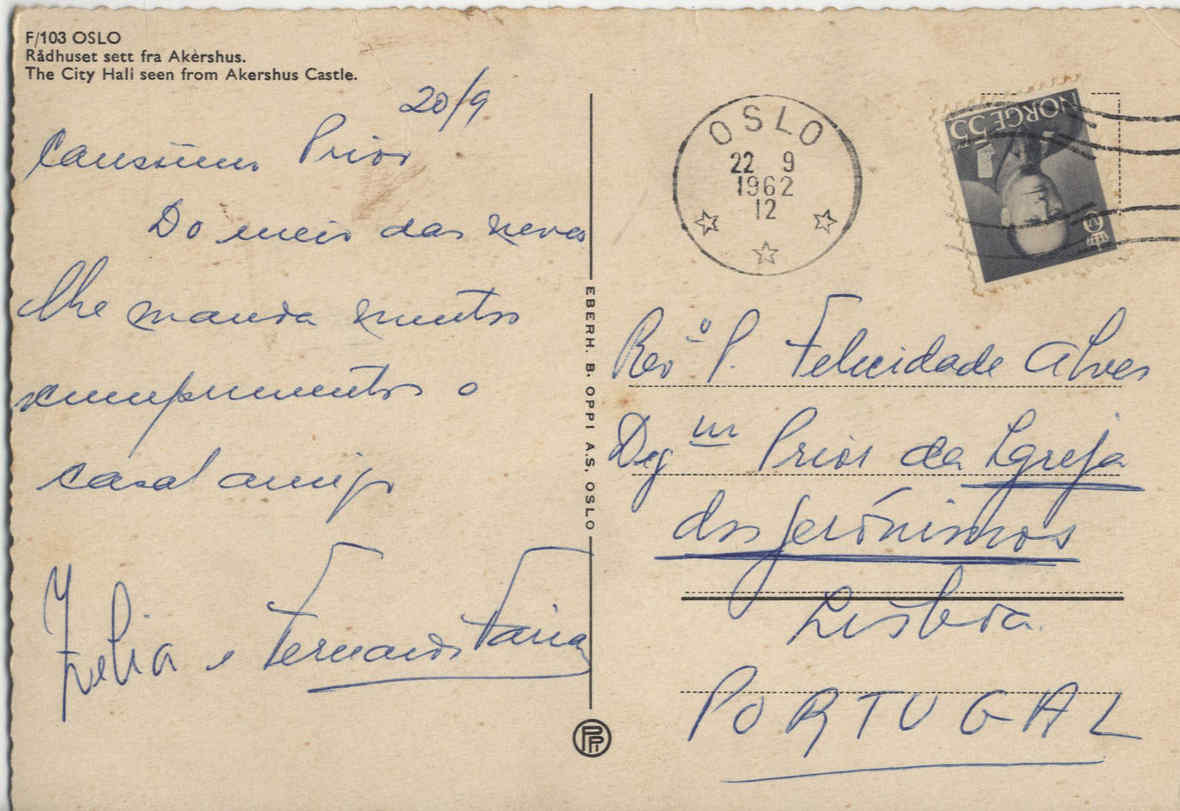 F/103 OSLO
Rådhuset sett fra Akèrshus.
The City Hall seen from Akershus Castle.
20/9
Caríssimo Prior
Do meio das neves
lhe manda muitos
cumprimentos o
casal amigo
Zélia e Fernando Faria
EBERH. B. OPPI A.S. OSLO
PPI
OSLO
22 9
1962
12
NORGE 55
Revº P. Felicidade Alves
Dgm Prior da Igreja
dos Jerónimos
Lisboa.
PORTUGAL